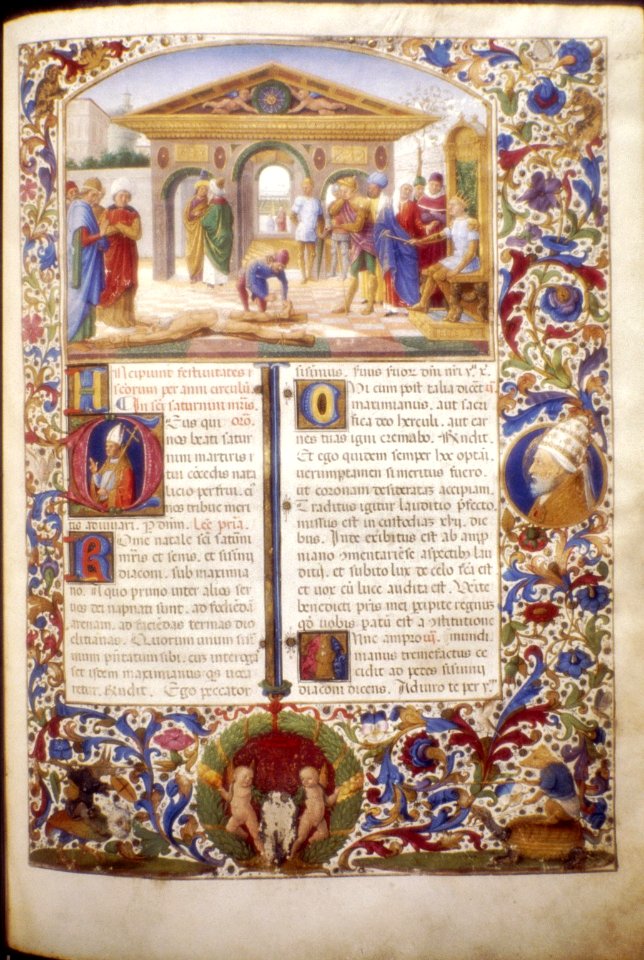 Incipiunt festivitates s
scorum per anni circulum
In sci saturnini mris.
Deus qui oro.
nos beati satur
nini martiris
tui concedis nata
licio perfrui. eius
nos tribue meri
tis adiuvari. P dnm. Lec pria.
Rome natale sci saturni
ni mris et senis. et sisinii
diaconi. sub maximia
no. In quo primo inter alios ser
vos dei dapnati sunt. ad fodiendam
arenam. ad faciendas termas dio
clitianas. Quorum unum sisi
nium pntatum sibi. cum interrogas
set idem maximianus. quis voca
retur. Rndit. Ego peccator
sisinnius. servus servor dni nri
Cui cum post talia dicent
maximianus. aut sacri
fica deo herculi. aut car
nes tuas igni cremabo. Rndit.
Et ego quidem semper hec optavi
verumptamen si meritus fuero.
ut coronam desideratam accipiam.
Traditus igitur lauditio prefecto.
missus est in custodia xvii. die
bus. Inde exibitus est ab amp
niano comentariense aspectibus lau
ditii. et subito lux de celo facta est
et vox cum luce audita est. Venite
benedicti patris mei percipite regnum
quod vobis paratum est a constitutione
mundi.
manus tremefactus ce
cidit ad pedes sisinnii
diaconi dicens. Adiuro te per